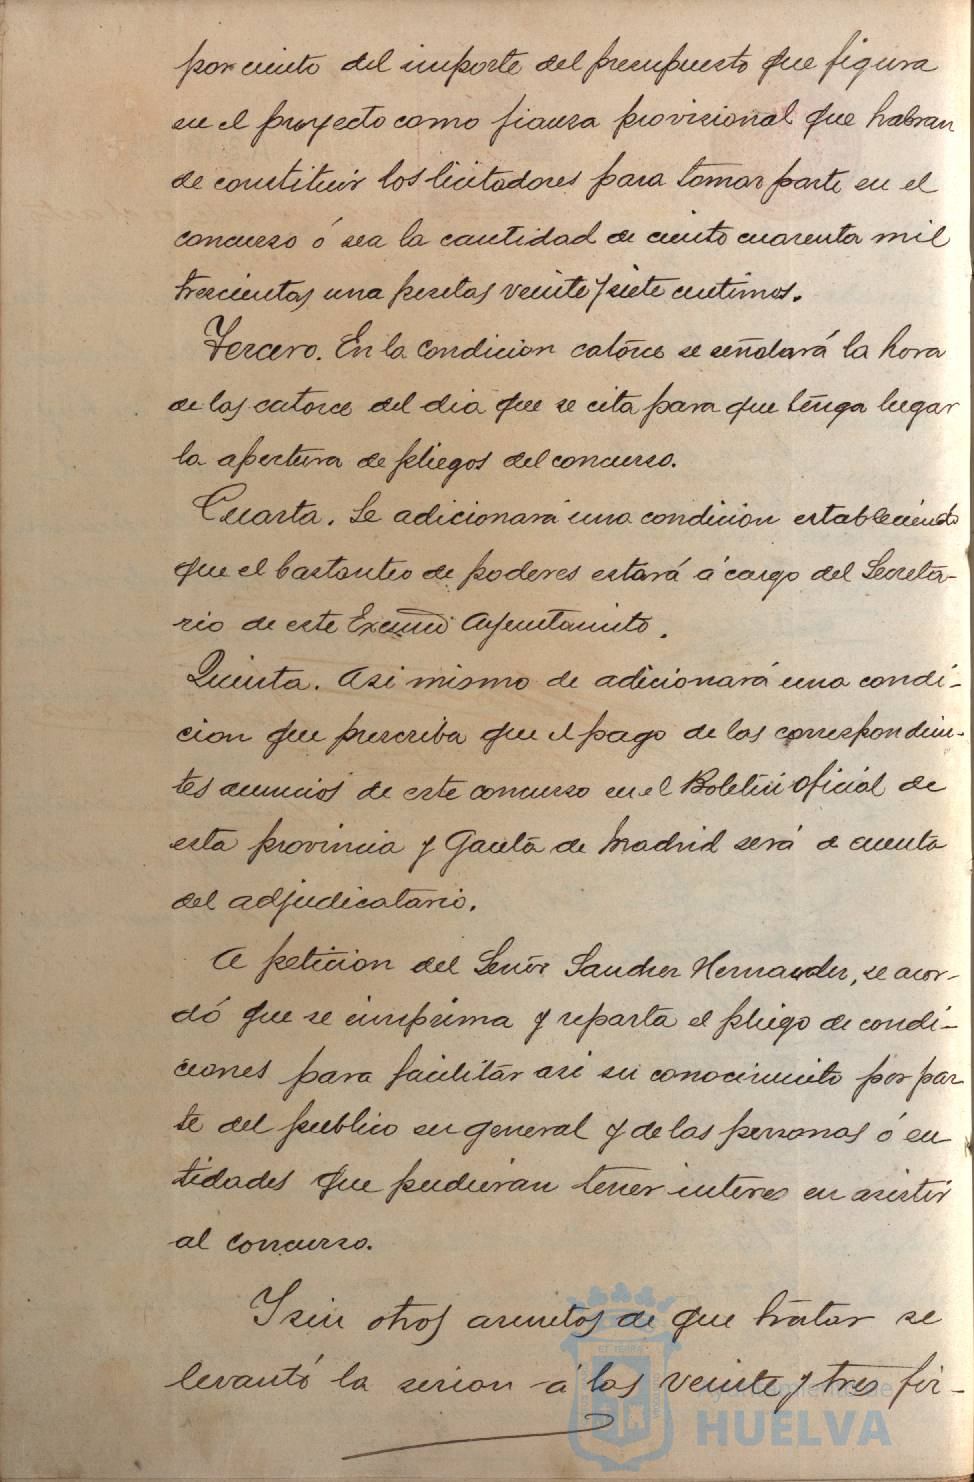 por ciento del importe del presupuesto que figura
en el proyecto como fianza provisional que habran
de constituir los licitadores para tomar parte en el
concurso ó sea la cantidad de ciento cuarenta mil
trescientas una pesetas veinte y siete centimos.
Tercero. En la condicion catorce se señalará la hora
de las catorce del dia que se cita para que tenga lugar
la apertura de pliegos del concurso.
Cuarta. Se adicionará una condicion estableciendo
que el bastanteo de poderes estará á cargo del Secreta-
rio de este Excmo Ayuntamiento.
Quinta. Asi mismo de adicionará una condi-
cion que prescriba que el pago de los correspondien-
tes anuncios de este concurso en el Boletin oficial de
esta provincia y Gaceta de Madrid será de cuenta
del adjudicatario.
A peticion del Señor Sanchez Hernandez, se acor-
dó que se imprima y reparta el pliego de condi-
ciones para facilitar asi su conocimiento por par
te del publico en general y de las personas ó en
tidades que pudieran tener interes en asistir
al concurso.
Y sin otros asuntos de que tratar se
levantó la sesion á las veinte y tres fir-
Ayuntamiento de
HUELVA